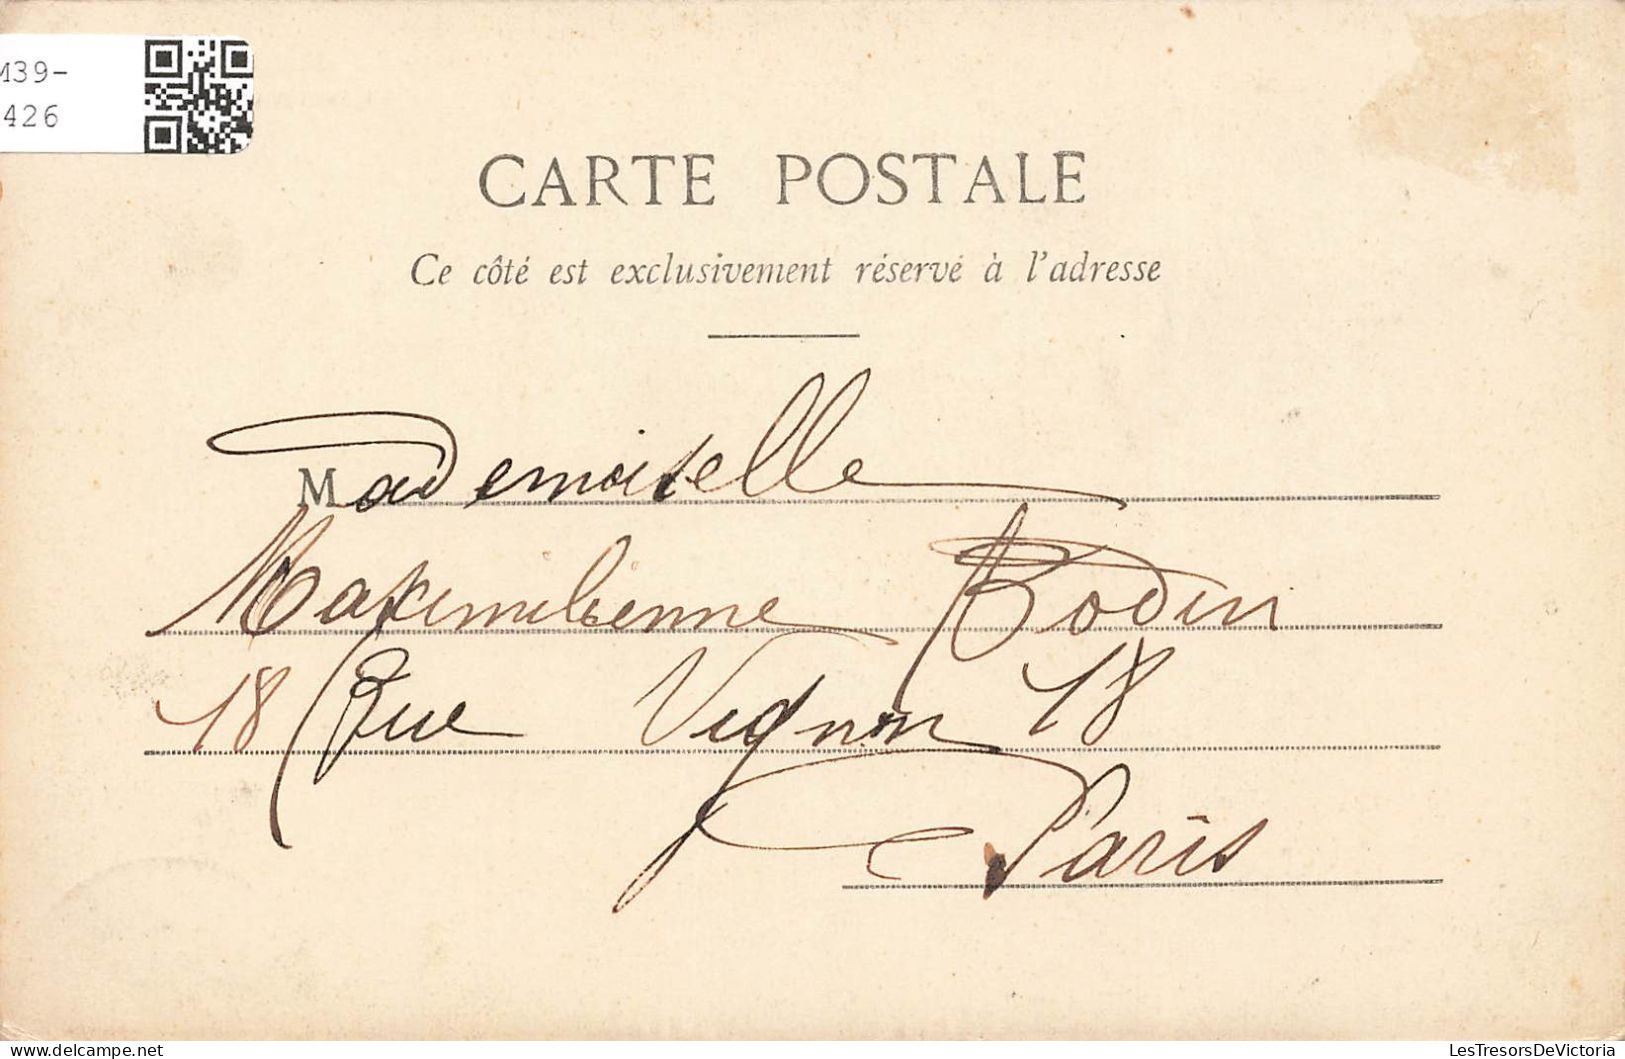 M39-
426
CARTE POSTALE
Ce côté est exclusivement réservé à l'adresse
Mademoiselle
Maximilienne Bodin
18 Rue Vignon 18
Paris
delcampe.net
LesTresorsDeVictoria